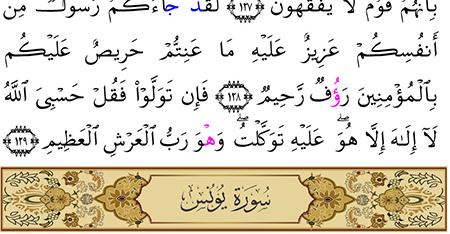 بِأَنَّهُمْ قَوْمٌ لَا يَفْقَهُونَ ﴿١٢٧﴾ لَقَدْ جَاءَكُمْ رَسُولٌ مِنْ
أَنفُسِكُمْ عَزِيزٌ عَلَيْهِ مَا عَنِتُّمْ حَرِيصٌ عَلَيْكُم
بِالْمُؤْمِنِينَ رَؤُفٌ رَحِيمٌ ﴿١٢٨﴾ فَإِن تَوَلَّوْا فَقُلْ حَسْبِىَ اللَّهُ
لَآ إِلَٰهَ إِلَّا هُوَۖ عَلَيْهِ تَوَكَّلْتُۖ وَهْوَ رَبُّ الْعَرْشِ الْعَظِيمِ ﴿١٢٩﴾
سُورَةُ يُونُسَ